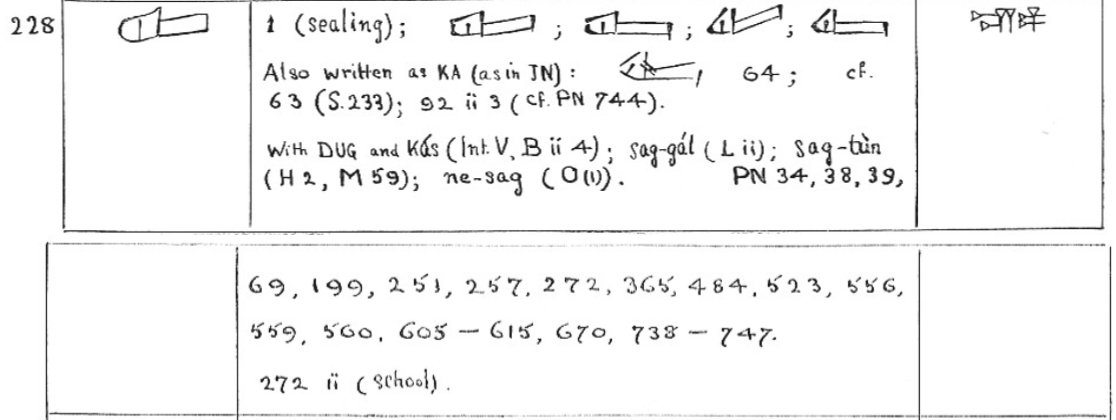 228
1 (sealing); ; ; ;
Also written as KA (as in JN): , 64; cf.
63 (S.233); 92 ii 3 (cf. PN 744).
With DUG and Kás (Int. V, B ii 4); sag-gál (L ii); sag-tùn
(H 2, M 59); ne-sag (O(1)). PN 34, 38, 39,
69, 199, 251, 257, 272, 365, 484, 523, 556,
559, 560, 605 – 615, 670, 738 – 747.
272 ii (school).